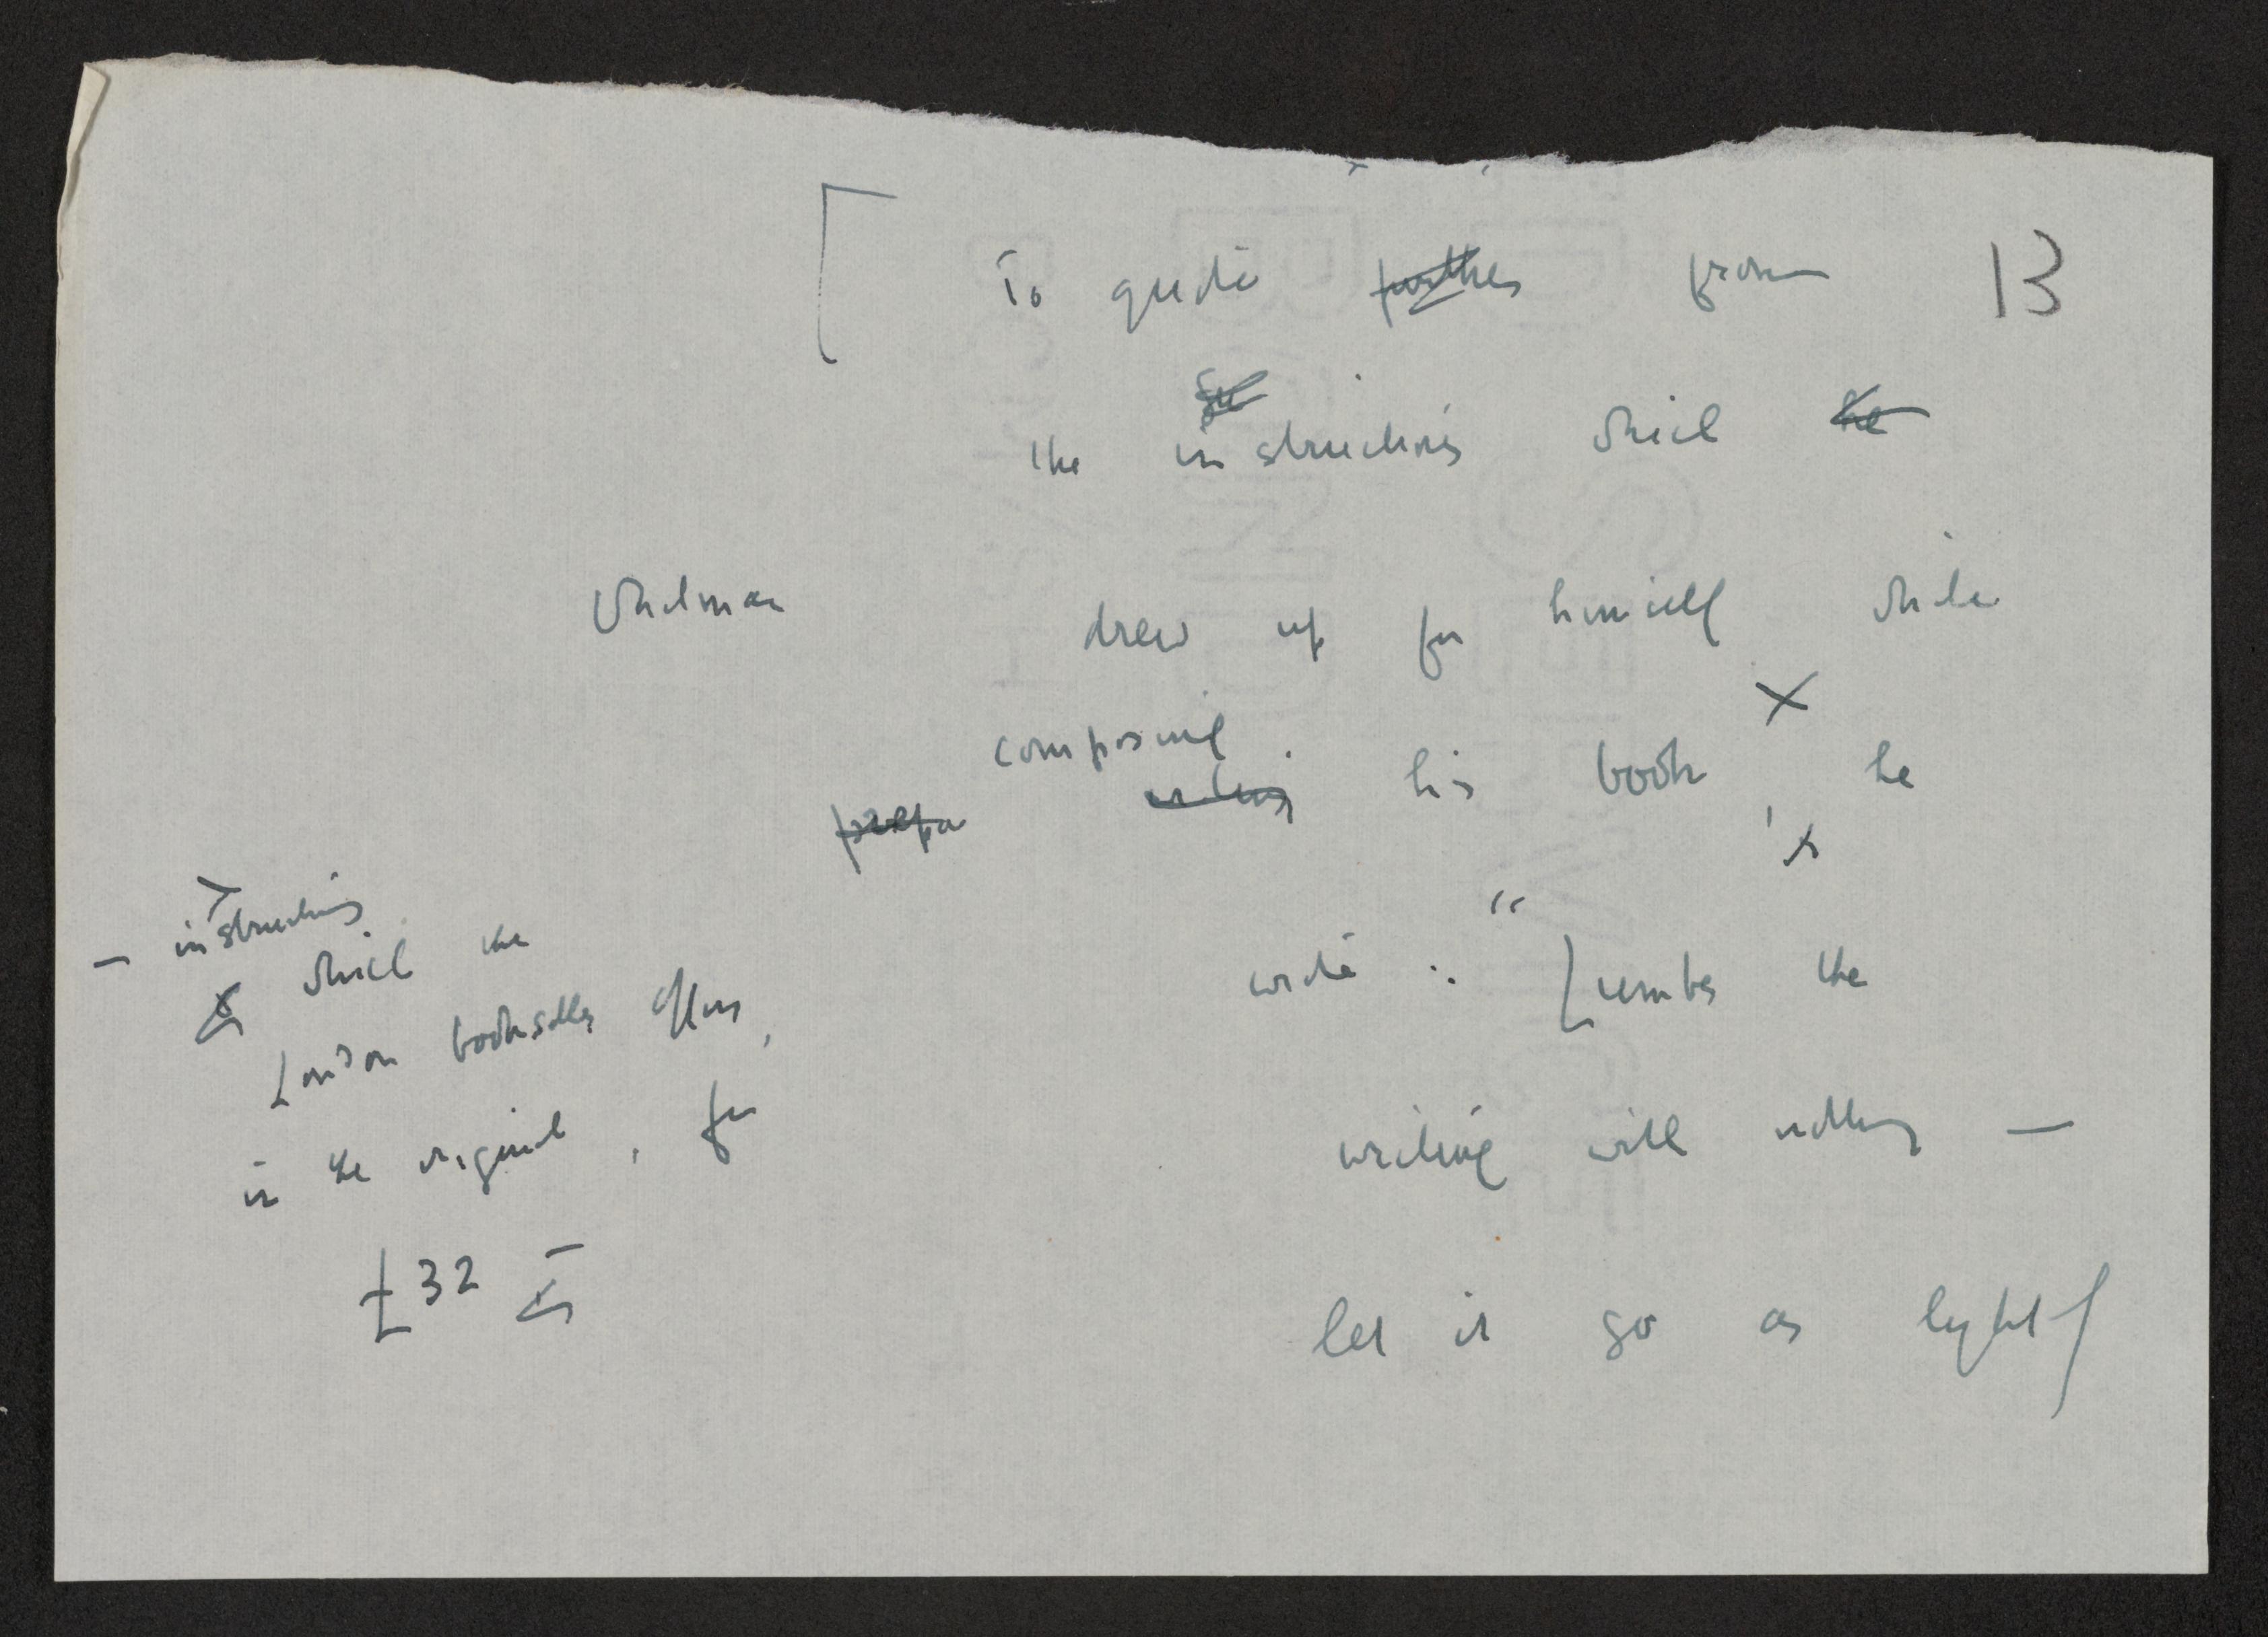 13
To quote further from
the instructions which he
Whitman drew up for himself while
composing
prepa writing his book, he
wrote: "Lumber the
writing with nothing —
let it go as light
— instructions
which the
London bookseller offers,
in the original, for
£32 —